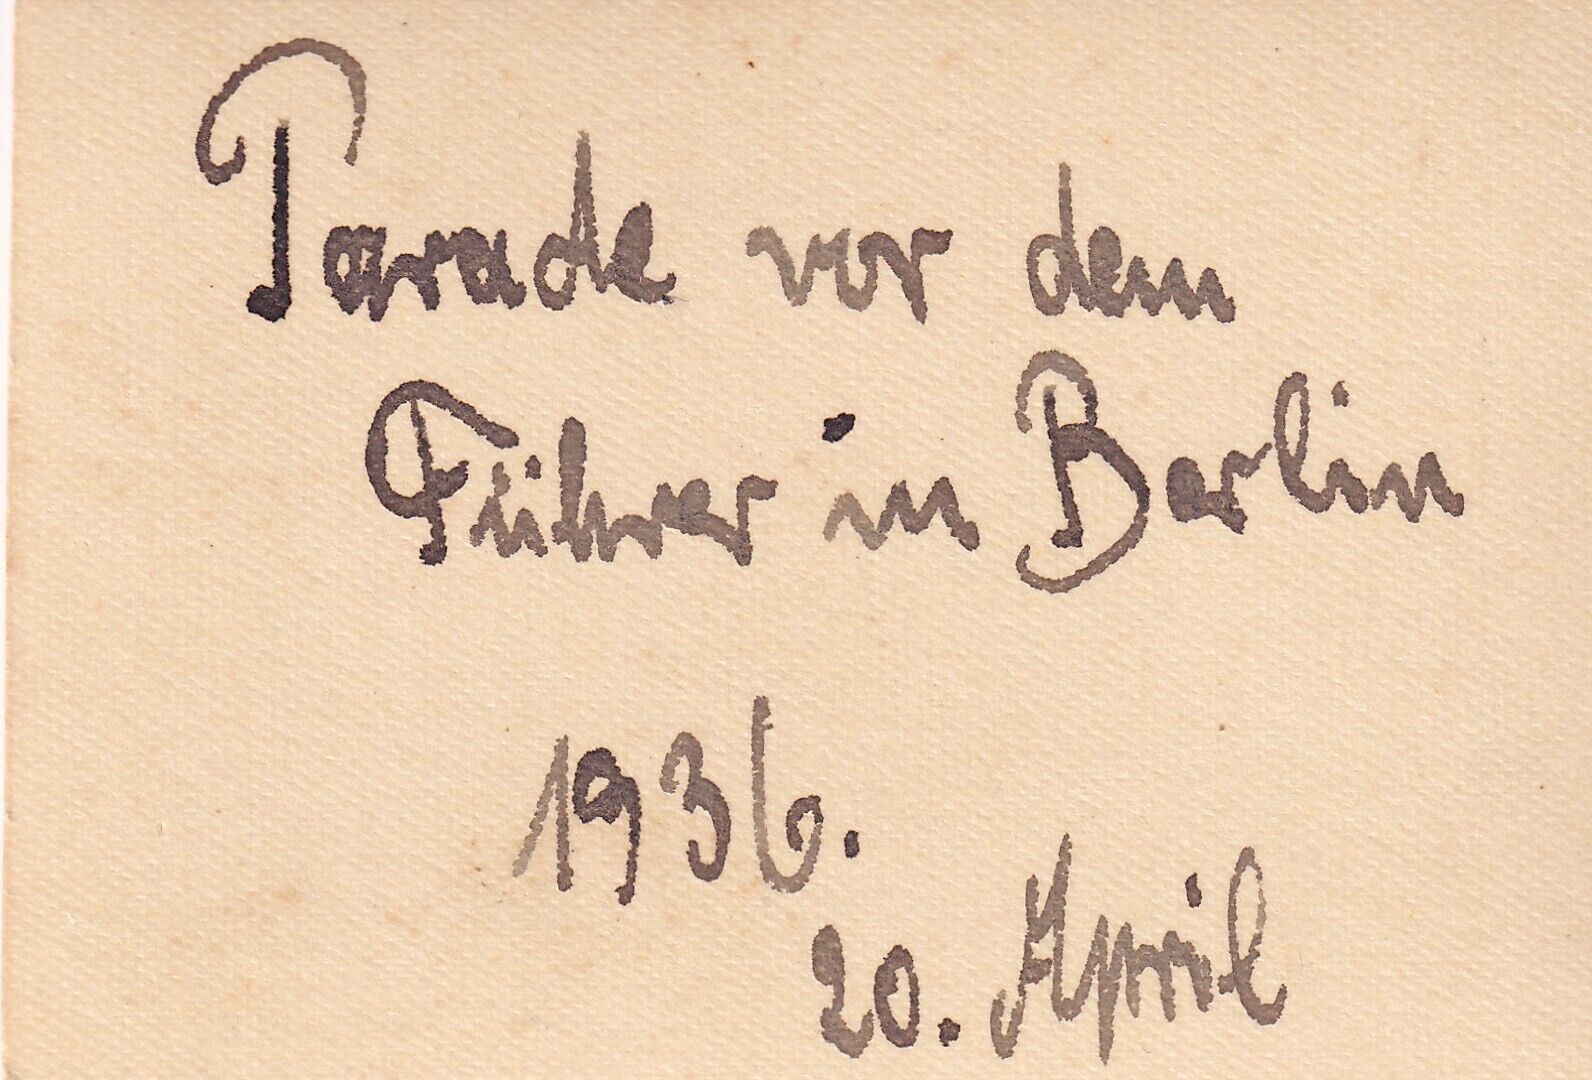 Parade vor dem
Führer in Berlin
1936.
20. April